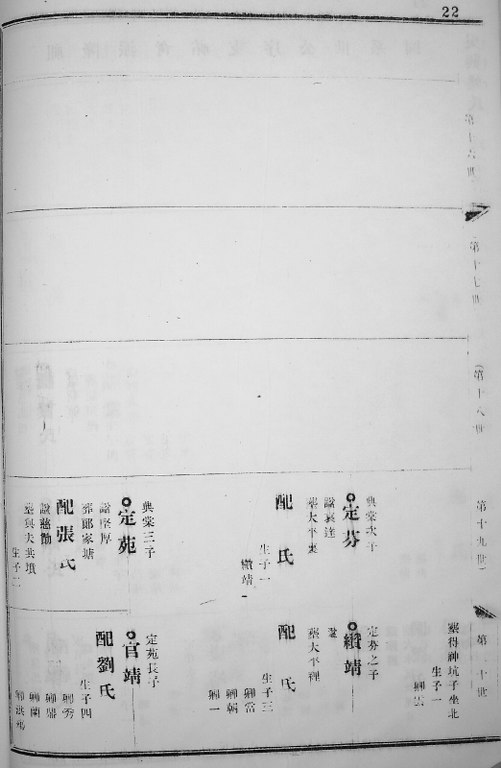 22
第十六世
第十七世
第十八世
第十九世
第二十世
典棠次子
定芬
諡襄達
葬大平裏
配 氏
生子一
纘靖
典棠三子
定苑
諡堅厚
葬郎家塘
配張氏
諡慈勤
墓與夫共墳
生子二
葬得神坑子坐北
生子一
卿雲
定芬之子
纘靖
葬大平裡
配 氏
生子三
卿當
卿朝
卿一
定苑長子
官靖
配劉氏
生子四
卿秀
卿鼎
卿蘭